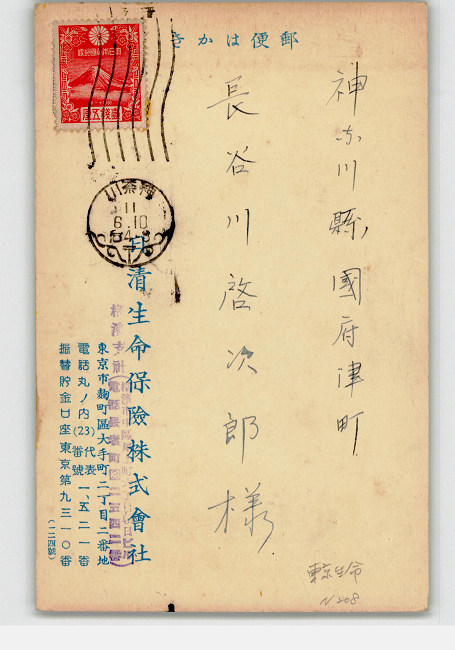 郵便はがき
神奈川縣國府津町
長谷川啓次郎様
日清生命保險株式會社
東京市麹町區大手町二丁目二番地
電話丸ノ内(23)代表番號一、五二一番
振替貯金口座東京第九三一〇番
(一二四號)
神奈川
11
6.10
東京生命
N 208